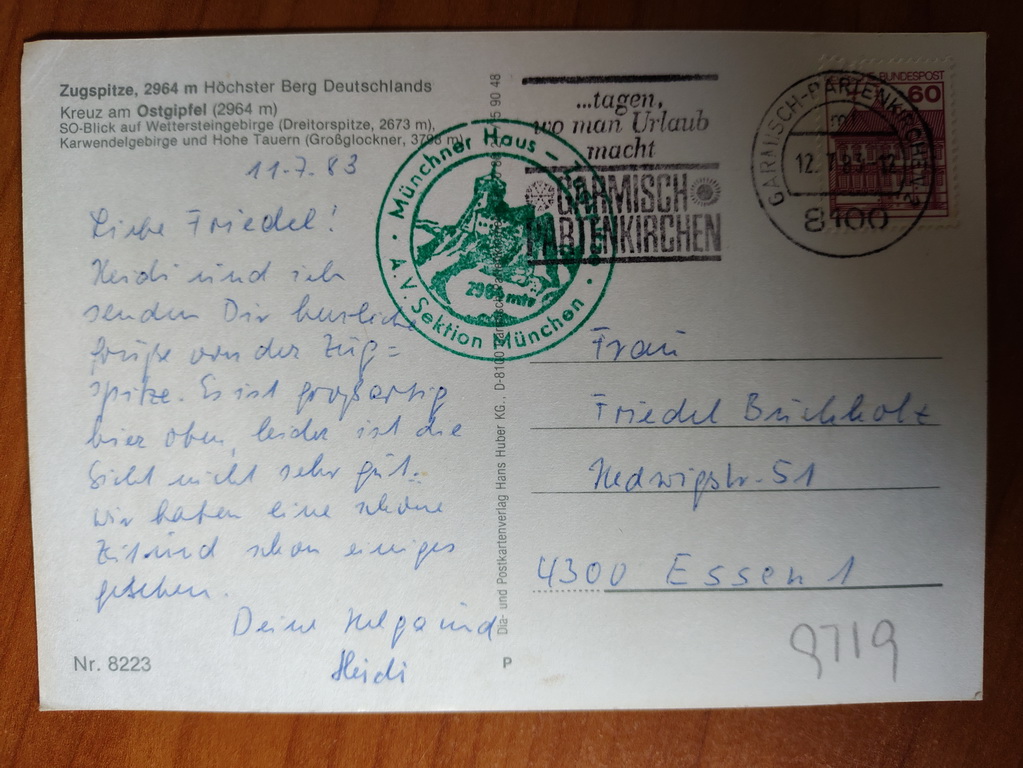 Zugspitze, 2964 m Höchster Berg Deutschlands
Kreuz am Ostgipfel (2964 m)
SO-Blick auf Wettersteingebirge (Dreitorspitze, 2673 m),
Karwendelgebirge und Hohe Tauern (Großglockner, 3798 m)
11.7.83
Liebe Friedel!
Heidi und ich
senden Dir herzliche
Grüße von der Zug=
spitze. Es ist großartig
hier oben, leider ist die
Sicht nicht sehr gut.
Wir haben eine schöne
Zeit und schon einiges
gesehen.
Deine Helga und
Heidi
Nr. 8223
Münchner Haus –
2964 mtr
A.V. Sektion München
Dia- und Postkartenverlag Hans Huber KG., D-8100
P
...tagen,
wo man Urlaub
macht
GARMISCH
PARTENKIRCHEN
GARMISCH-PARTENKIRCHEN 2
12.7.83-12
8100
BUNDESPOST
60
Frau
Friedel Buchholz
Hedwigstr. 51
4300 Essen 1
9719